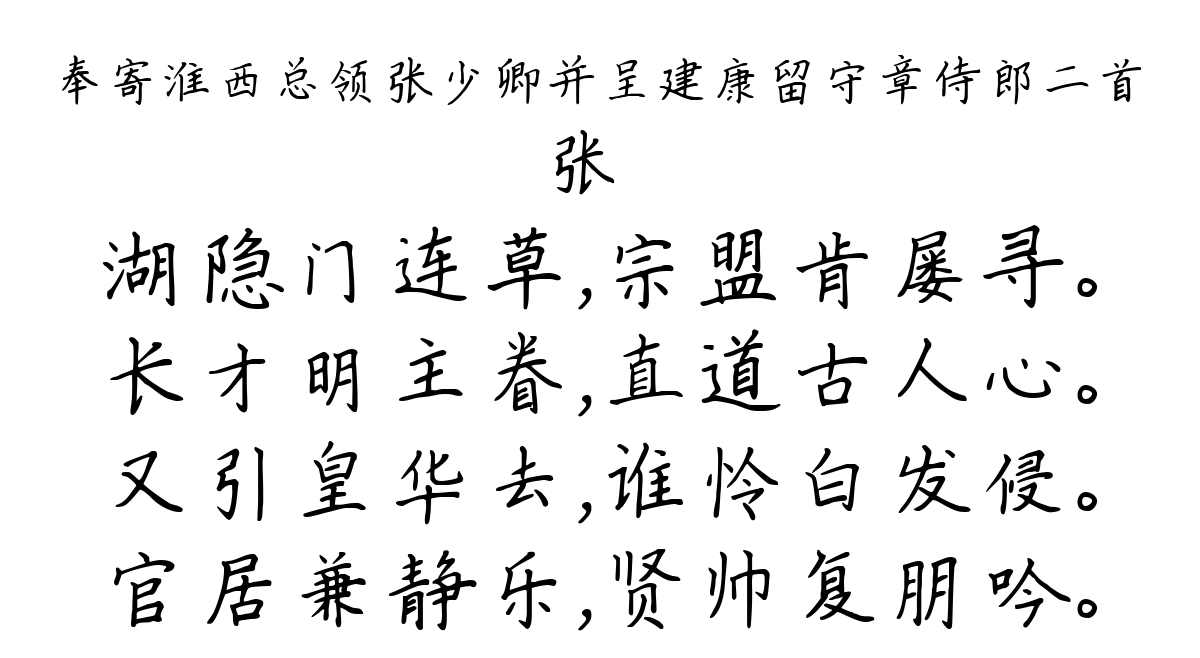 奉寄淮西总领张少卿并呈建康留守章侍郎二首
张
湖隐门连草,宗盟肯屡寻。
长才明主眷,直道古人心。
又引皇华去,谁怜白发侵。
官居兼静乐,贤帅复朋吟。